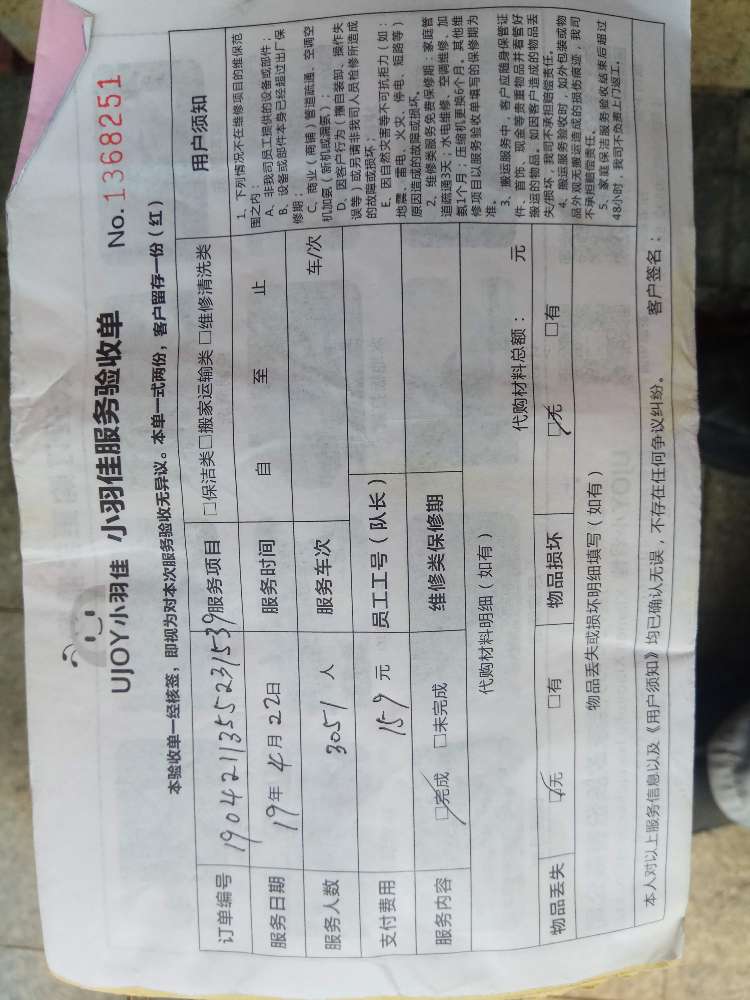 UJOY小羽佳 小羽佳服务验收单 No.1368251
本验收单一经核签，即视为对本次服务验收无异议。本单一式两份，客户留存一份（红）
订单编号 1904211355231539 服务项目 □保洁类□搬家运输类 □维修清洗类
服务日期 19年 4月 22日 服务时间 自 至 止
服务人数 3051 人 服务车次 车/次
支付费用 159 元 员工工号（队长）
服务内容 □完成 □未完成 维修类保修期
代购材料明细（如有） 代购材料总额： 元
物品丢失 □无 □有 物品损坏 □无 □有
物品丢失或损坏明细填写（如有）
用户须知
1、下列情况不在维修项目的维保范
围之内：
A、非我司员工提供的设备或部件；
B、设备或部件本身已经超过出厂保
修期；
C、商业（商铺）管道疏通、空调空
机加氨（新机或漏氨）；
D、因客户行为（擅自装卸、操作失
误等）或另请非我司人员检修所造成
的故障或损坏；
E、因自然灾害等不可抗拒力（如：
地震、雷电、火灾、停电、短路等）
原因造成的故障或损坏。
2、维修类服务免费保修期：家庭管
道疏通3天；水电维修、空调维修、加
氨1个月；压缩机更换6个月。其他维
修项目以服务验收单填写的保修期为
准。
3、搬运服务中，客户应随身保管证
件、首饰、现金等贵重物品并看管好
搬运的物品。如因客户造成的物品丢
失/损坏，我司不承担赔偿责任。
4、搬运服务验收时，如外包装或物
品外观无搬运造成的损伤痕迹，我司
不承担赔偿责任。
5、家庭保洁服务验收结束后超过
48小时，我司不负责上门返工。
本人对以上服务信息以及《用户须知》均已确认无误，不存在任何争议纠纷。 客户签名：